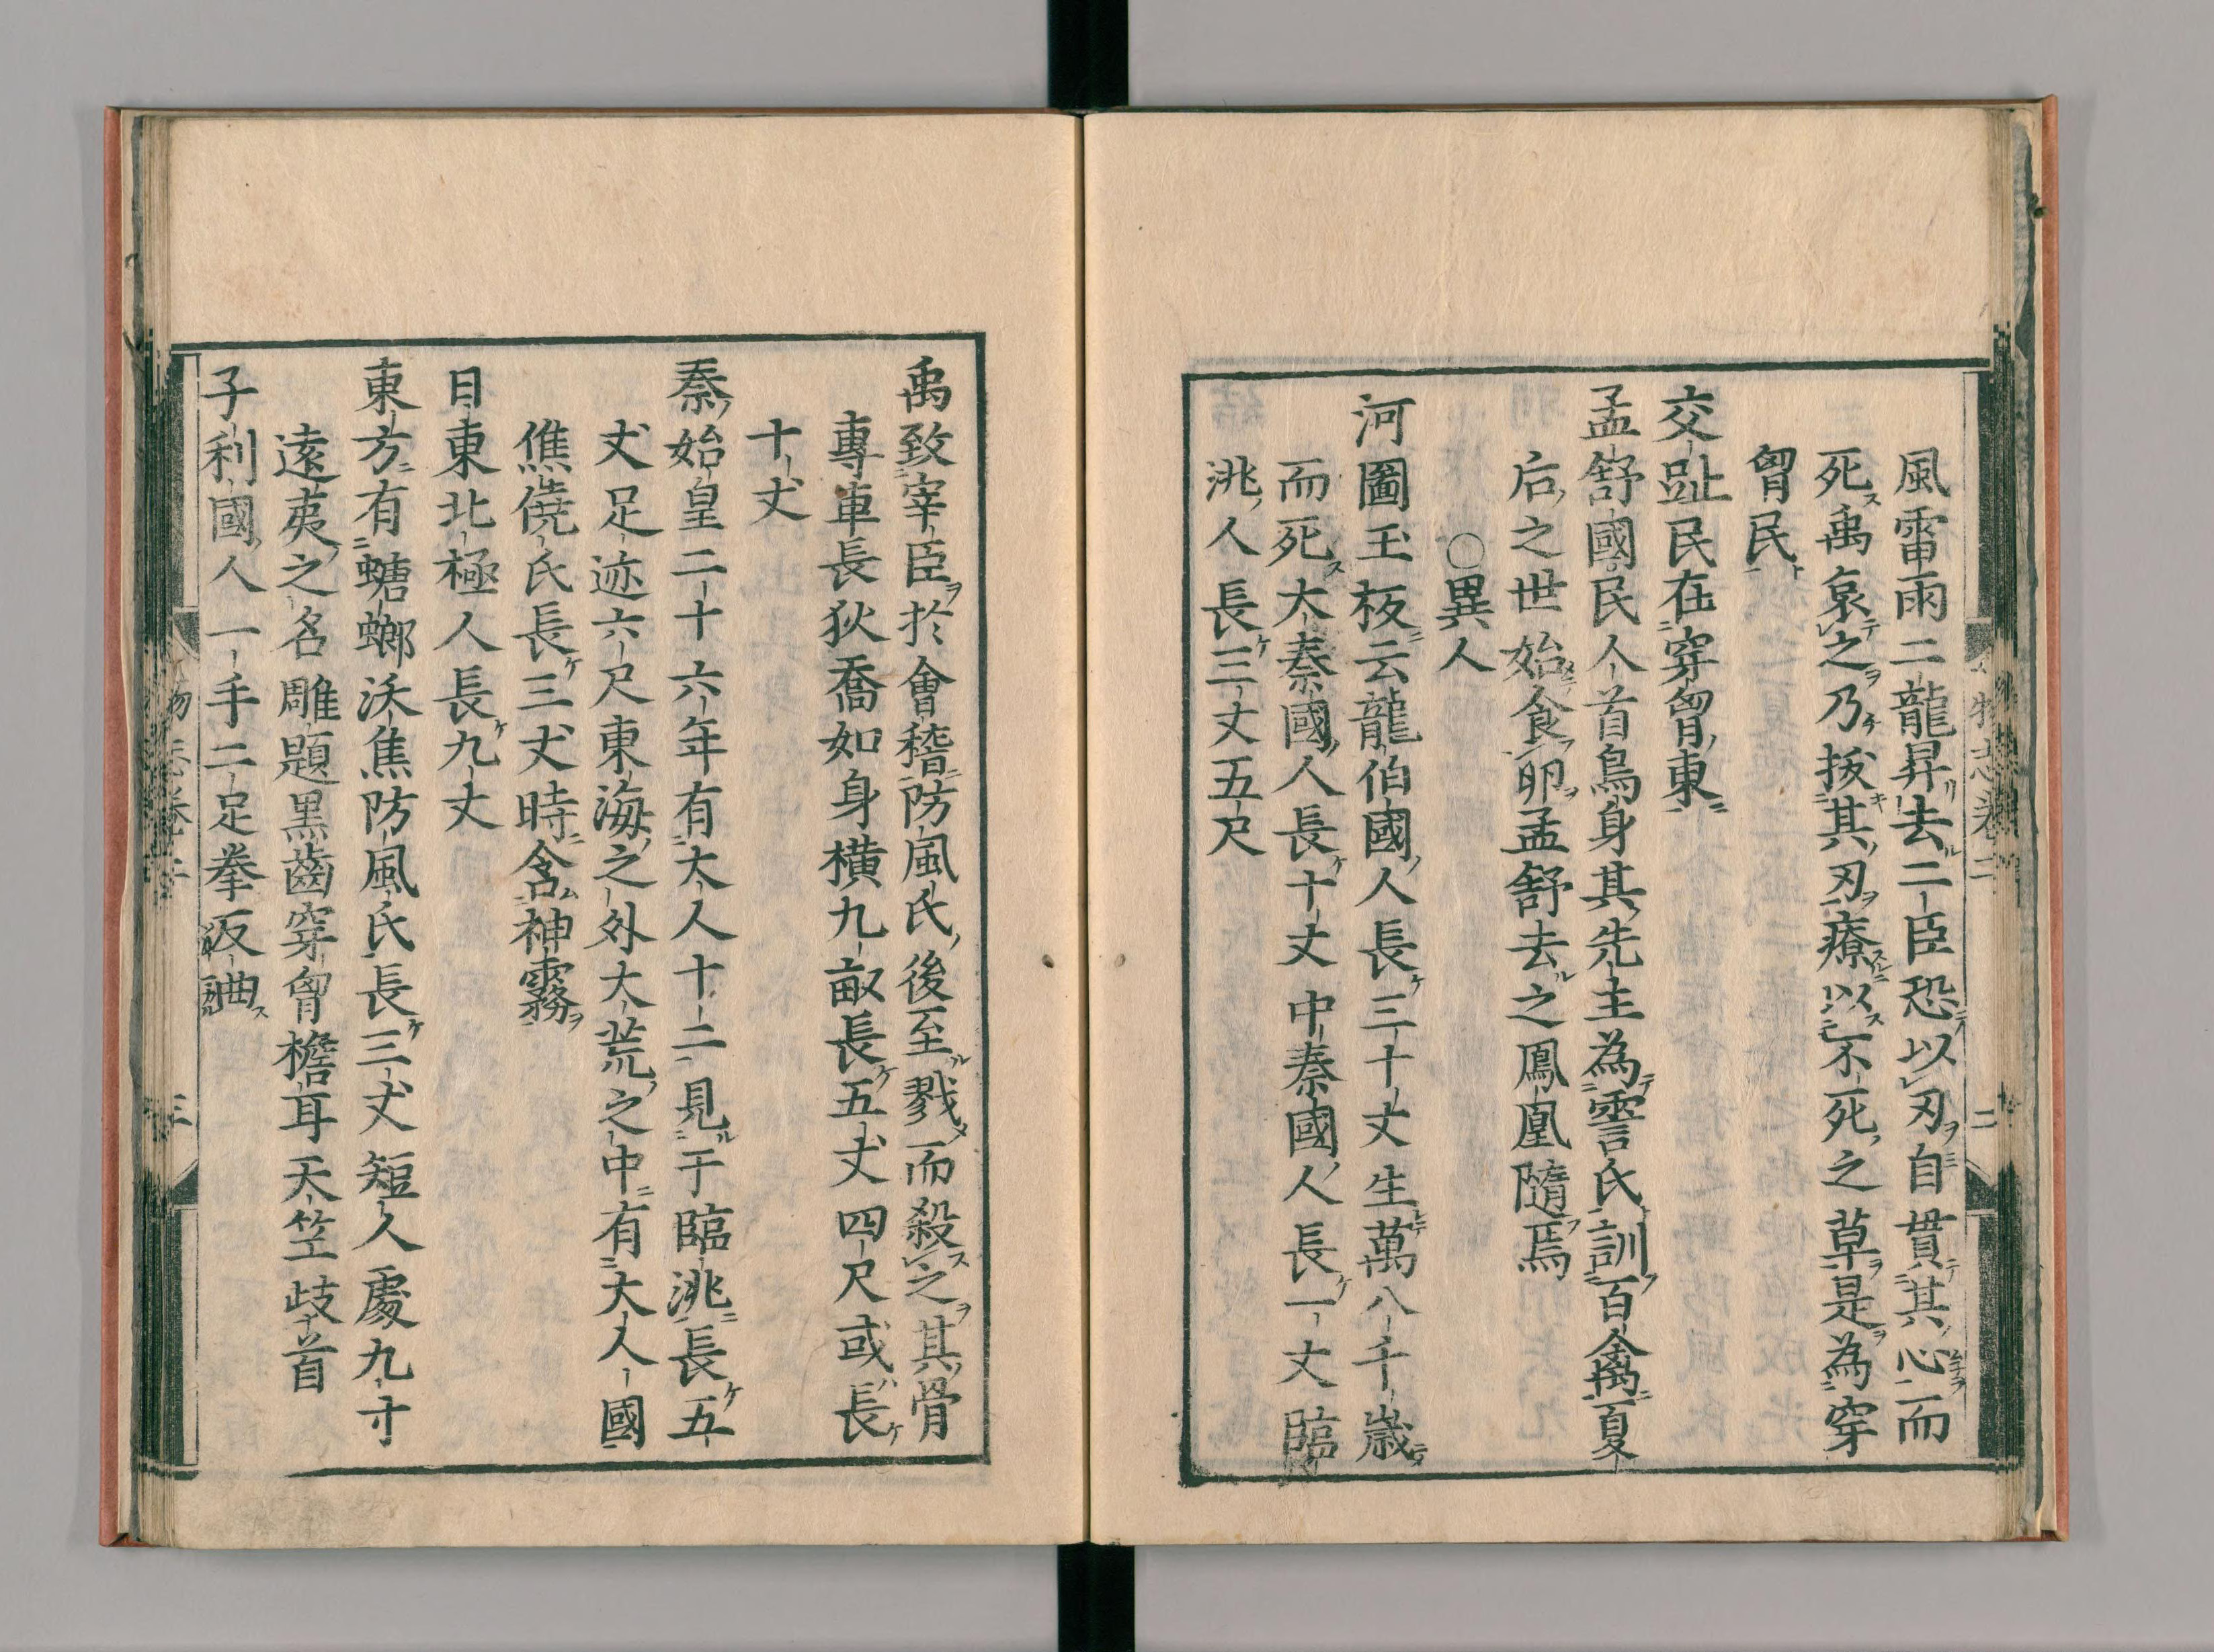 風雷雨二龍昇去二臣恐以刃自貫其心而
死禹哀之乃拔其刃療以不死之草是為穿
胷民
交趾民在穿胷東
孟舒國民人首鳥身其先主為霅氏訓百禽夏
后之世始食卵孟舒去之鳳凰隨焉
○異人
河圖玉板云龍伯國人長三十丈生萬八千歲
而死大秦國人長十丈中秦國人長一丈臨
洮人長三丈五尺
禹致宰臣於會稽防風氏後至戮而殺之其骨
專車長狄喬如身橫九畝長五丈四尺或長
十丈
秦始皇二十六年有大人十二見于臨洮長五
丈足迹六尺東海之外大荒之中有大人國
僬僥氏長三丈時含神霧
日東北極人長九丈
東方有螗螂沃焦防風氏長三丈短人處九寸
遠荑之名雕題黑齒穿胷檐耳天竺歧首
子利國人一手二足拳反曲